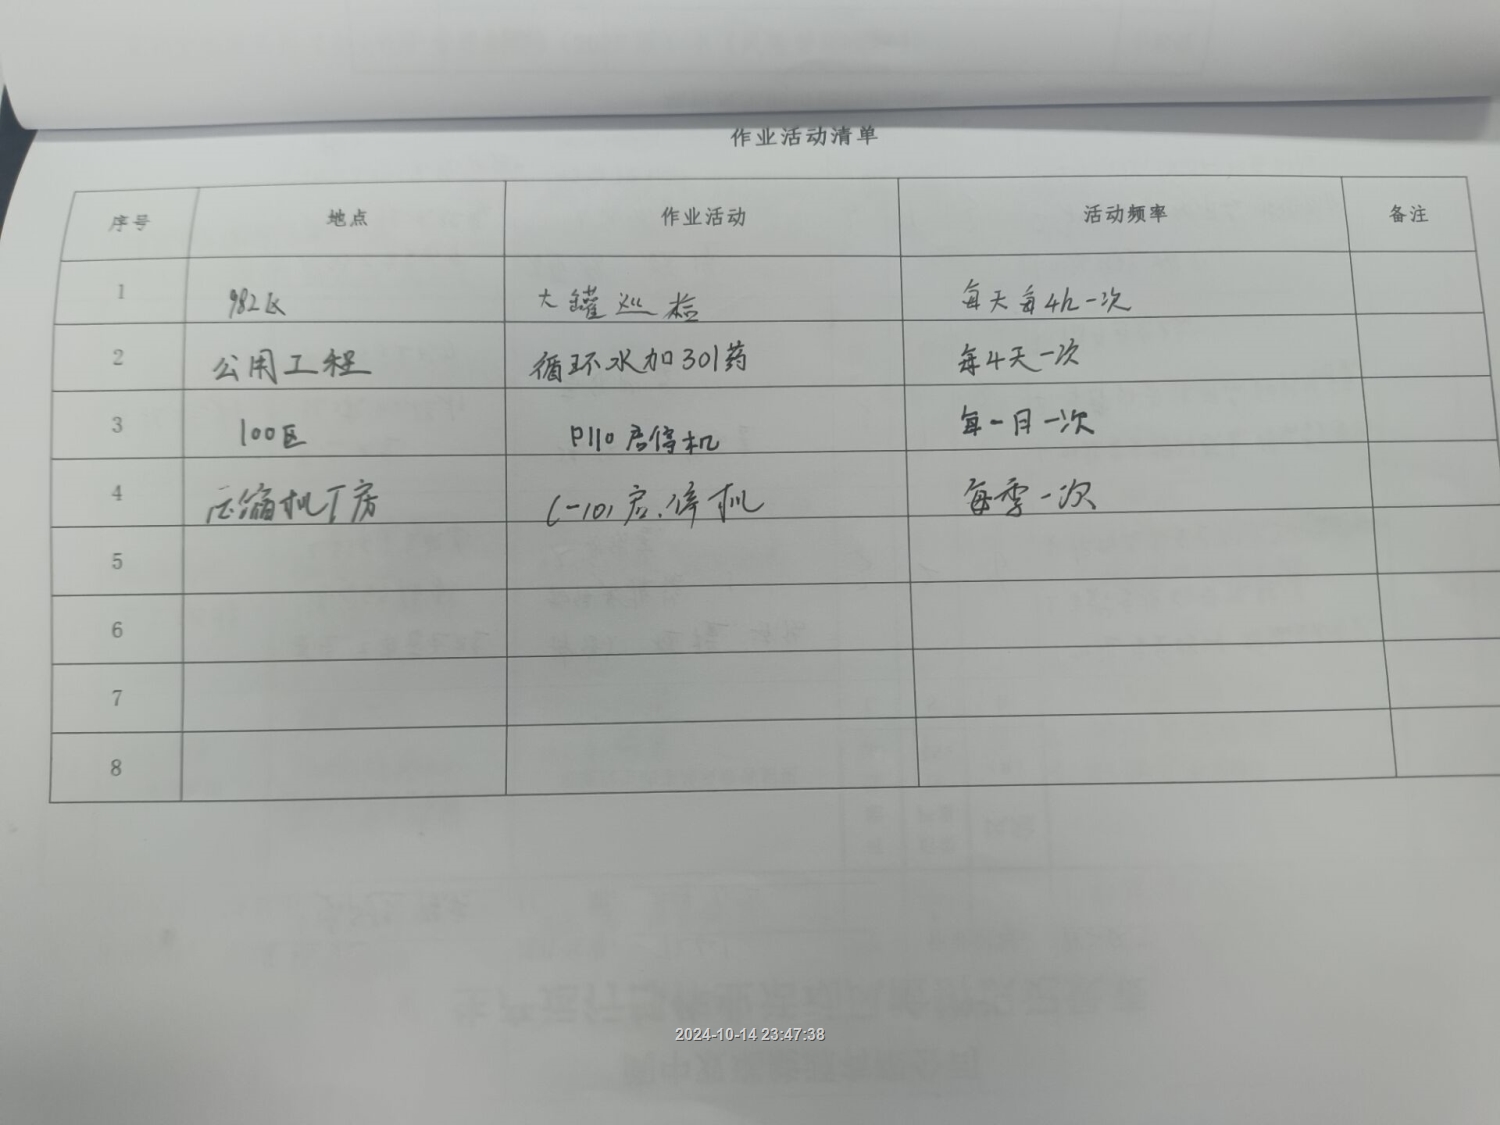 作业活动清单
序号 地点 作业活动 活动频率 备注
1 982区 大罐巡检 每天每4h一次
2 公用工程 循环水加301药 每4天一次
3 100区 P110启停机 每一月一次
4 压缩机厂房 C-101启.停机 每季一次
5
6
7
8
2024-10-14 23:47:38